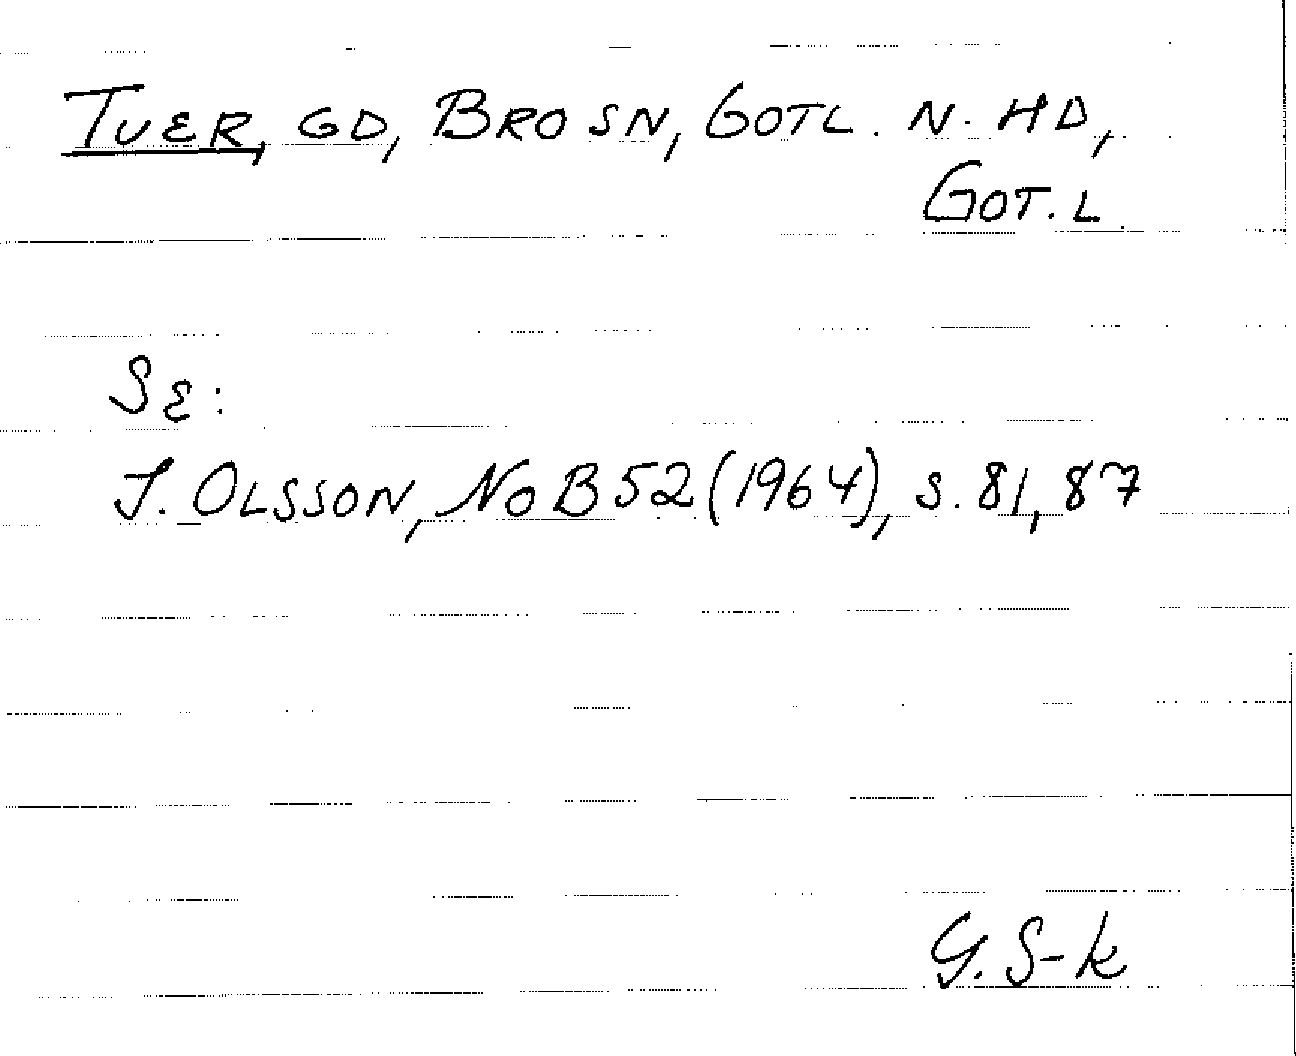 TUER, GD, BRO SN, GOTL. N. HD,
GOT. L.
SE:
I. OLSSON, NoB 52 (1964), s. 81, 87
G. S-k